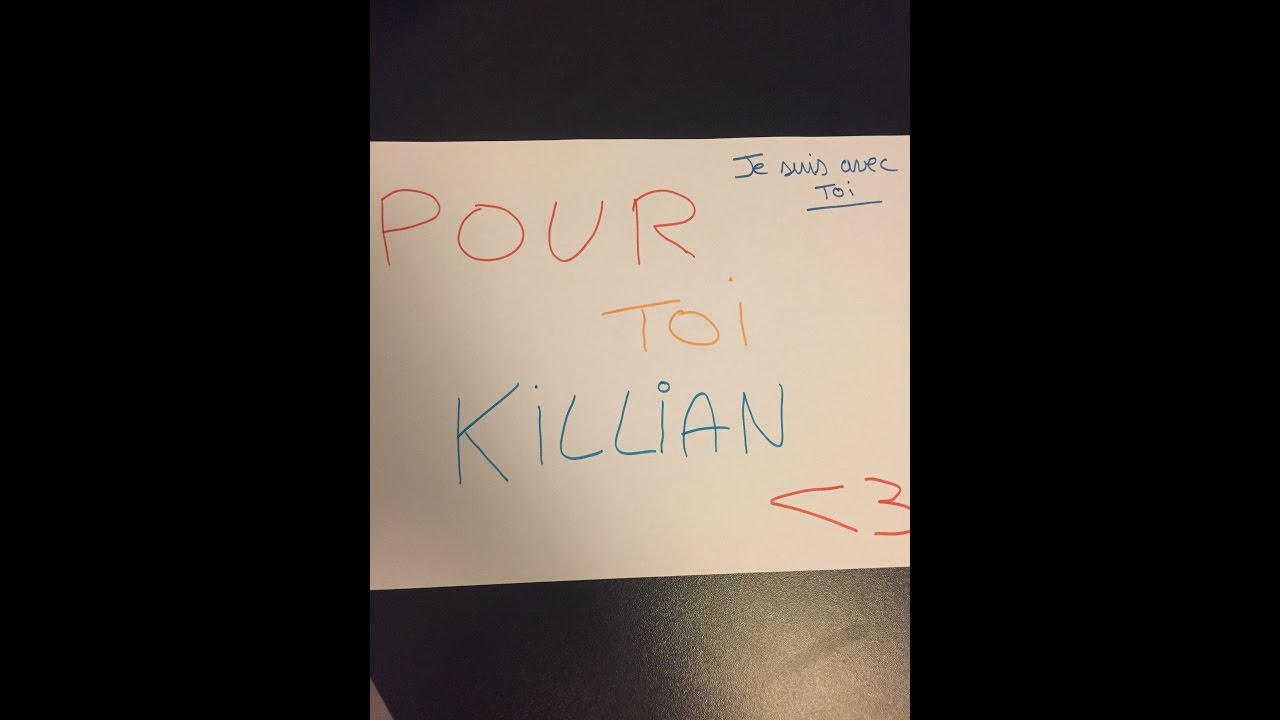 Je suis avec
Toi
POUR
TOi
KiLLiAN
<3